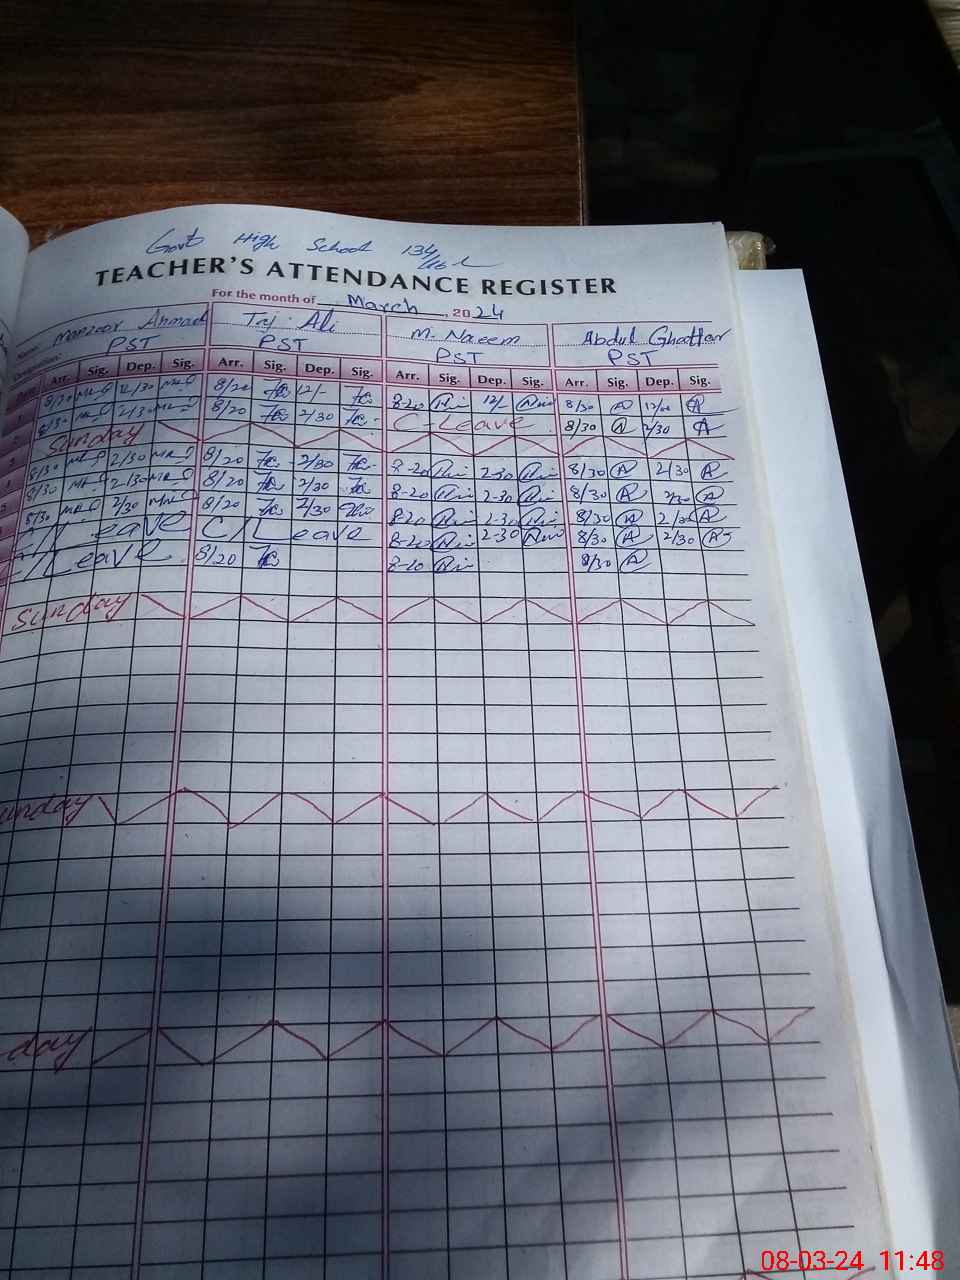 Govt High School 134/16-L
TEACHER'S ATTENDANCE REGISTER
For the month of March, 2024
Name: Manzoor Ahmad Taj Ali M. Naeem Abdul Ghaffar
PST PST PST PST
Arr. Sig. Dep. Sig. Arr. Sig. Dep. Sig. Arr. Sig. Dep. Sig. Arr. Sig. Dep. Sig.
8/20 12/30 8/20 12/- 8-20 12/- 8/30
8/30 2/30 8/20 2/30 C-Leave 8/30 2/30
Sunday
8/30 2/30 8/20 2/30 8-20 2-30 8/30 2/30
8/30 2/30 8/20 2/30 8-20 2-30 8/30 2/30
8/30 2/30 8/20 2/30 8-20 2-30 8/30 2/30
C/Leave C/Leave 8-20 2-30 8/30 2/30
C/Leave 8/20 8-20 8/30
Sunday
unday
day
08-03-24 11:48